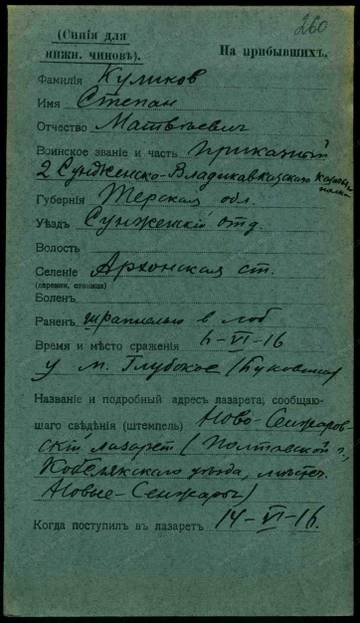 260
(Синія для
нижн. чиновъ).
На прибывшихъ.
Фамилія Куликов
Имя Степан
Отчество Матвѣевич
Воинское званіе и часть приказный
2 Сунженско-Владикавказскаго
Губернія Терская обл.
Уѣздъ Сунженскій отд.
Волость
Селеніе Архонская ст.
(деревня, станица)
Боленъ
Раненъ шрапнелью в лоб
Время и мѣсто сраженія 6-VI-16
у м. Глубокое (Буковина)
Названіе и подробный адресъ лазарета, сообщаю-
щаго свѣдѣнія (штемпель) Ново-Сенжаров-
скій лазарет (Полтавской г.,
Кобелякскаго уѣзда, мѣстеч.
Новые-Сенжары)
Когда поступил въ лазаретъ 14-VI-16.